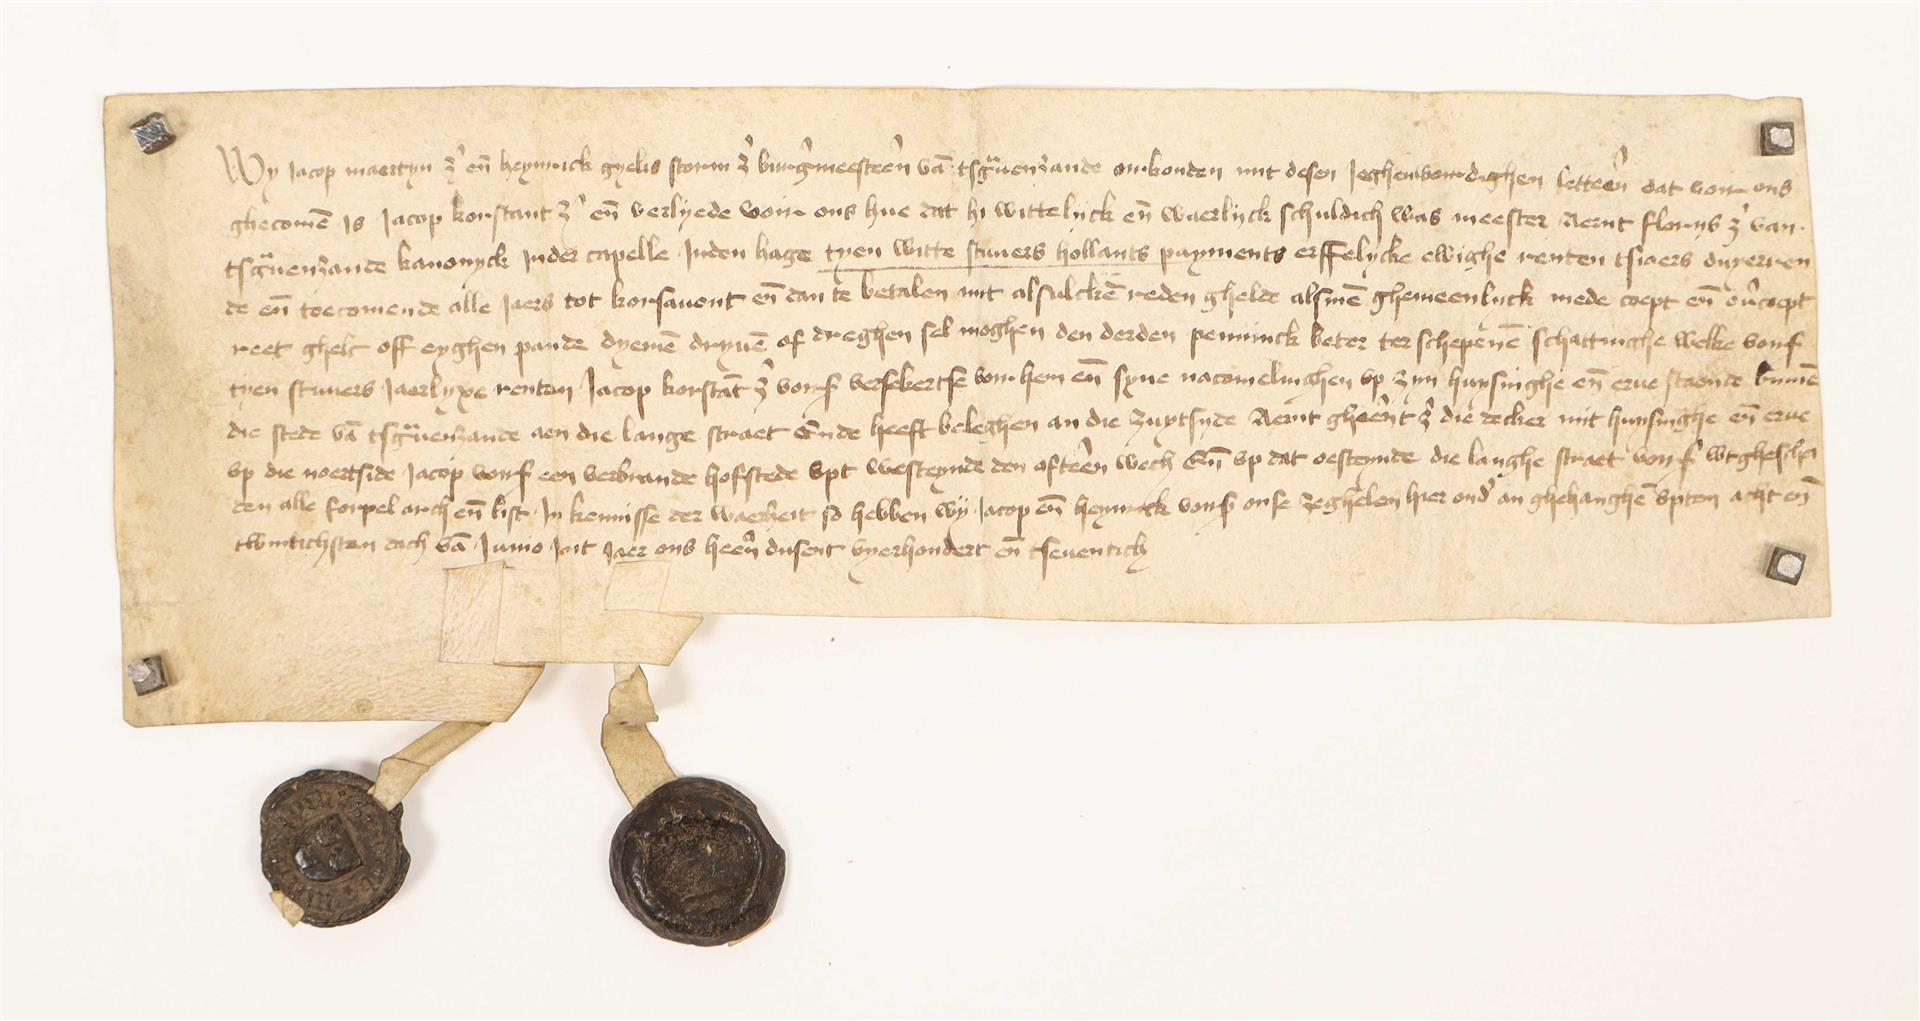 Wy Jacop maertyn zͦ en̄ heynrick gyelis storm zͦ burgͦmeesteͦn vā tsgͣuenzande oirkonden mit desen Jeghenwoirdighen letteͦn dat voir ons
ghecomē is Jacop korstant zͦ en̄ verlyede voir ons hue dat hi wittelijck en̄ waerlijck schuldich was meester Aernt florijs zͦ van
tsgͣuenzande kanonyck Inder capelle Inden hage tyen witte stuuers hollants payments erffelycke ewighe renten tsiaers duyerren
de en̄ toecomende alle Jaers tot korsauont en̄ dan te betalen mit alsulckē reden ghelde alsmē ghemeenlijck mede coept en̄ oͮcoept
reet ghelt off eyghen pande dyemē dryuē of dreghen sel moghen den derden penninck beter ter schepenē schattinghe welke vorſ
tyen stuuers Jaerlyxe renten Jacop korstāt zͦ vorſ versekertse voir hem en̄ syne nacomelinghen vp zijn huysinghe en̄ erue staende binnē
die stede vā tsgͣuenzande aen die lange straet Ende heeft beleghen an die zuytsijde Aernt gheeͦnt zͦ die decker mit huysinghe en̄ erue
vp die noertside Jacop vorſ een verbrande hofstede vpt westeynde den ofteͦn wech En̄ vp dat oesteynde die langhe straet vorſ wtghesche
den alle forpel arch en̄ list In kennisse der waerheit so hebben wij Jacop en̄ heynrick vorſ onse zeghelen hier ondͦ an ghehanghē vpten acht en̄
twintichsten dach vā Junio Jnt Jaer ons heeͦn dusent vyerhondert en̄ tseuentich